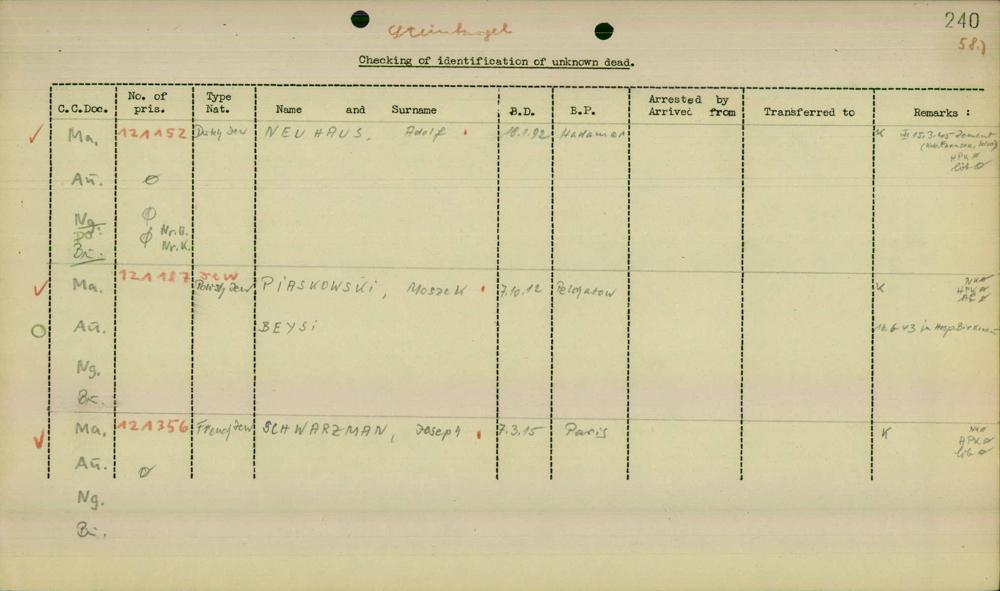 240
Steinkogel
58.)
Checking of identification of unknown dead.
C.C.Doc. No. of pris. Type Nat. Name and Surname B.D. B.P. Arrested by Arrived from Transferred to Remarks :
Ma. 121152 Dutch Jew NEUHAUS, Adolf 18.1.92 Hadamar K 15.3.45 Zement
HPK
Au. ø lib ø
Ng. ø
Do: ø Nr.B.
Bu. Nr.K.
121187 Jew
Ma. Polish Jew PIASKOWSKI, Moszek 7.10.12 Belchatow K NK ø
HPK ø
Au. BEYSI 12.6.43 in Hosp. Birkenau
Ng.
Bu.
Ma. 121356 French Jew SCHWARZMAN, Joseph 7.3.15 Paris K NK ø
HPK ø
Au. ø lib ø
Ng.
Bu.